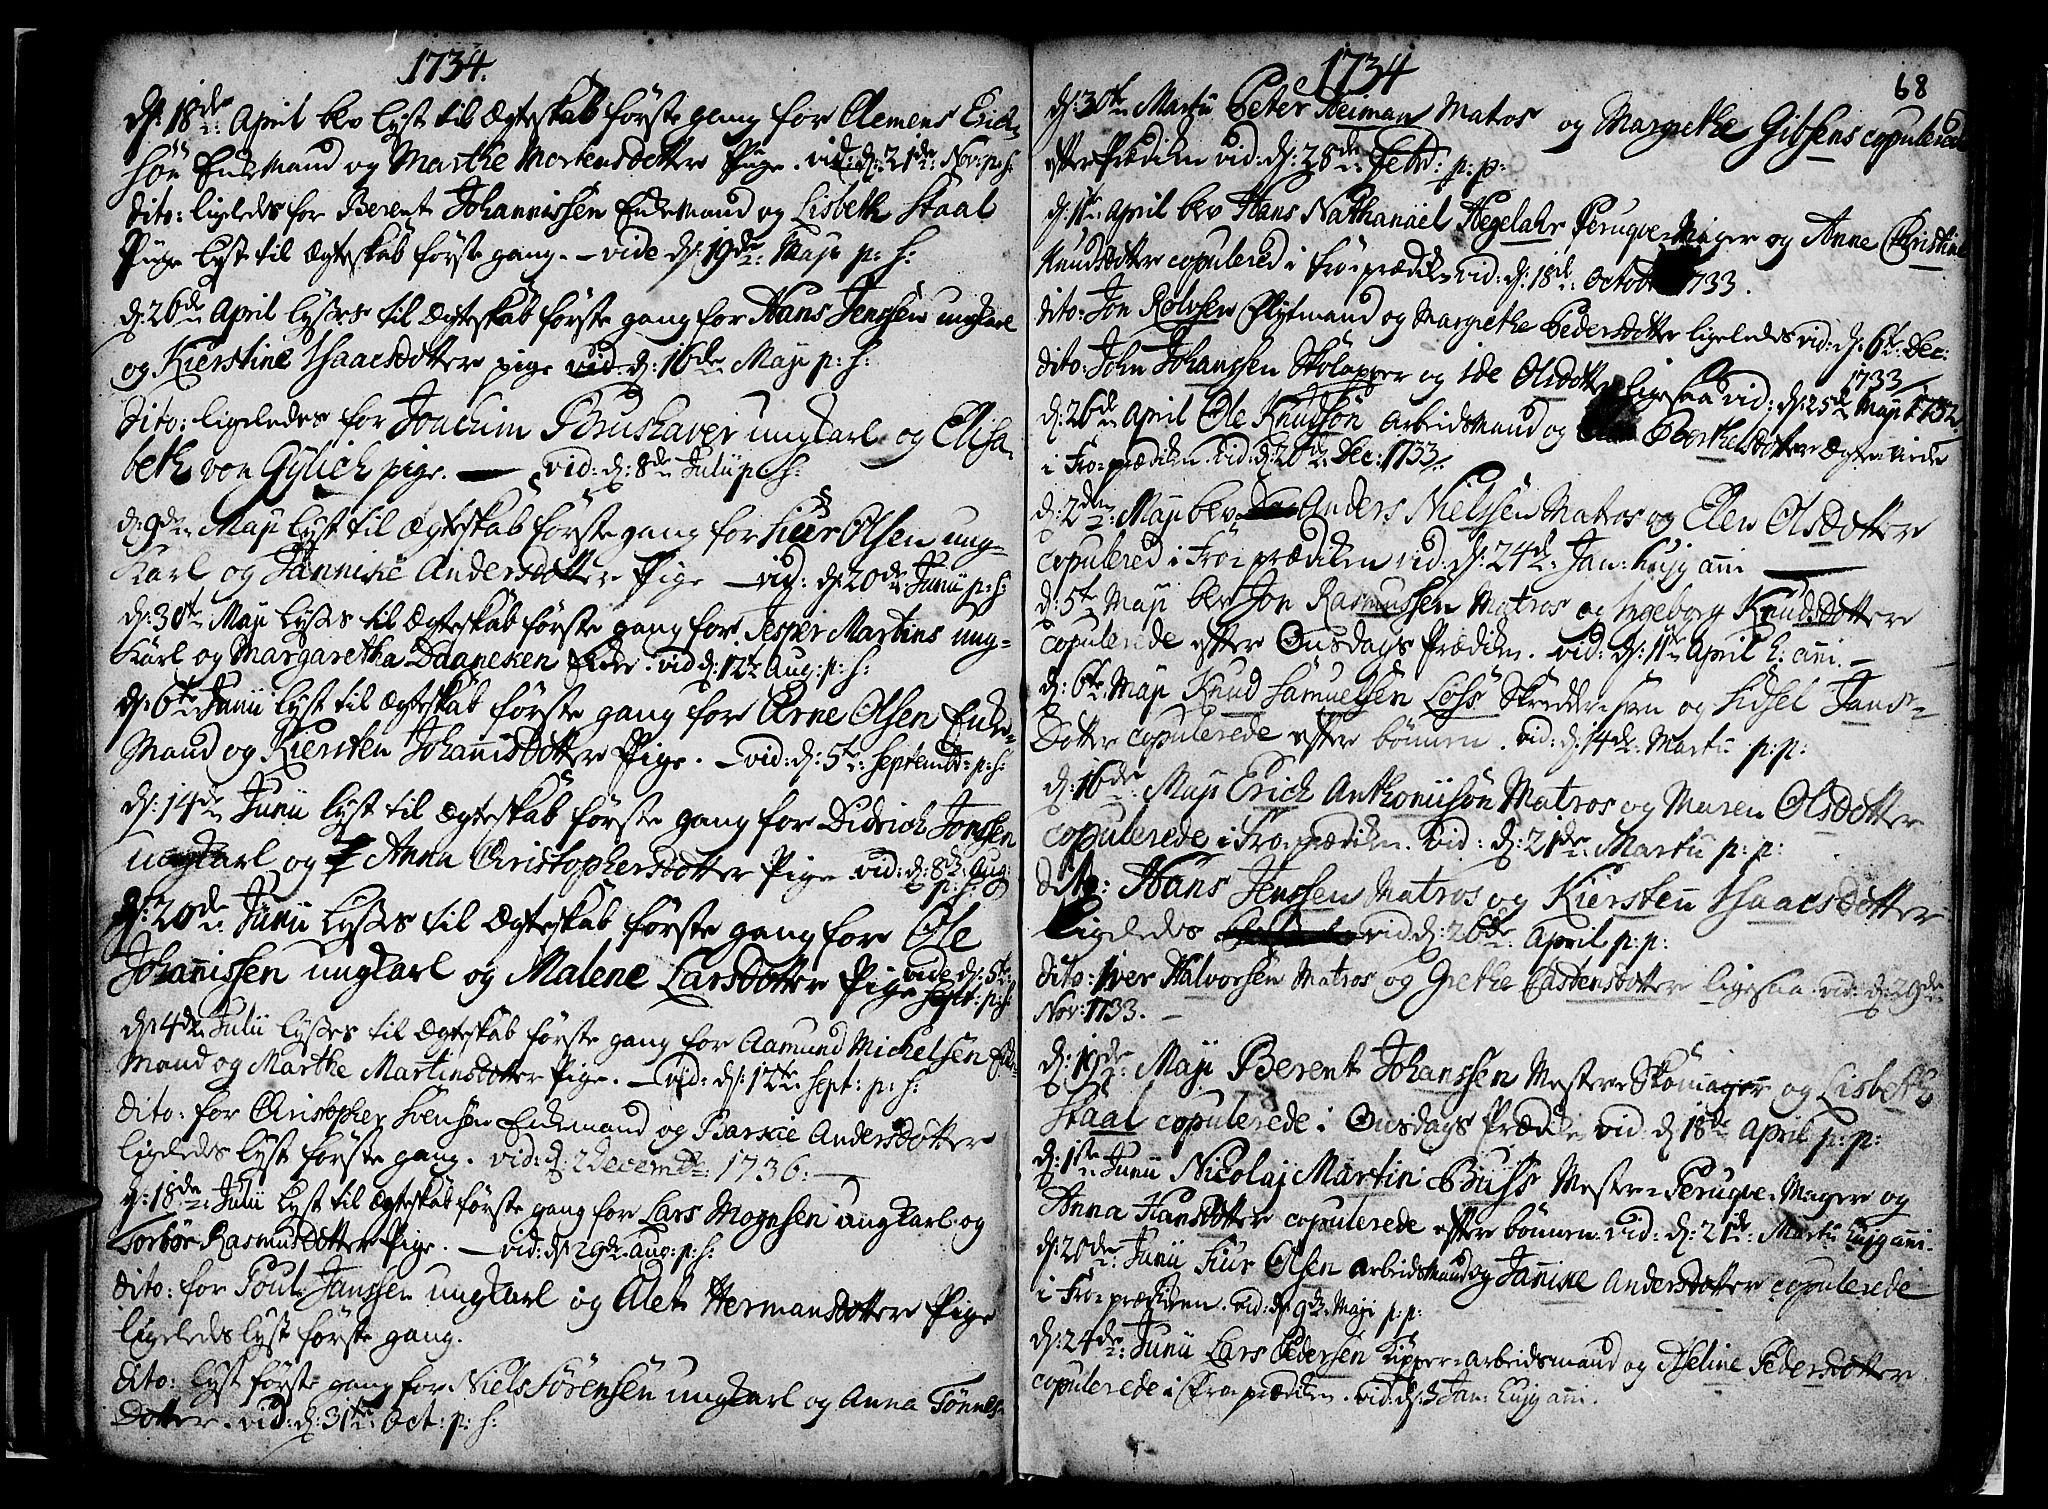 1734.
d: 18de April blv lyst til Ægteskab første gang for Clemens Erich
søn Enkemand og Marthe Mortensdotter Pige. vid: d: 21de Nov: p: h:
dito: ligeledes for Berent Johannissen Enkemand og Lisbeth Staal
Pige lyst til Ægteskab første gang. – vide d: 19de Maji p: h:
d: 26de April lyses til Ægteskab første gang for Hans Jenssen ungkarl
og Kierstine Isaacsdotter pige vid: d: 16de Maji p: h:
dito: ligeledes for Joachim Brushaver ungkarl og Elisa
beth von Gylich pige. — vid: d: 8de Julii p: h:
d: 9de Maji lyst til Ægteskab første gang for Siur Olsen ung-
Karl og Jannike Andersdotter Pige – vid: d: 20de Junii p: h:
d: 30te Maji lyses til Ægteskab første gang for Jesper Martins ung-
Karl og Margaretha Daaneken Enke. vid d: 12te Aug: p: h:
d: 6te Junii lyst til Ægteskab første gang for Arne Olsen Enke-
Mand og Kiersten Johannisdotter Pige. – vid: d: 5te Septembr: p: h:
d: 14de Junii lyst til Ægteskab første gang for Didrich Jonssen
ungkarl og Anna Christophersdotter Pige vid: d: 8de Aug:
p: h:
d: 20de Junii lyses til Ægteskab første gang for Ole
Johannissen ungkarl og Malene Larsdotter Pige vide d: 5te
Sept: p: h:
d: 4de Julii lyses til Ægteskab første gang for Aamund Michelsen Enke-
Mand og Marthe Martinsdotter Pige. – vid: d: 12te Sept: p: h:
dito: for Christopher Svensen Enkemand og Barskie Andersdotter
ligeledes lyst første gang. vid: d: 2 Decemb: 1736. —
d: 18de Julii lyst til Ægteskab første gang for Lars Mognsen ungkarl og
Torbør Rasmusdotter Pige. – vid: d: 29de Aug: p: h:
dito: for Poul Janssen ungkarl og Alet Hermansdotter Pige
ligeledes lyst første gang.
dito: lyst første gang for Niels Sørensen ungkarl og Anna Tønnes-
Dotter. vid: d: 31te Oct: p: h:
1734
68
d: 30te Martii Peter Neiman Matros og Margrethe Gibsens copulerede
efter Prædiken vid: d: 28de Febr: p: p:
d: 11te April blv Hans Nathanael Hegelahr Peruqve-Mager og Anne Christine
Knudsdotter copulered i Froprædik: vid: d: 18de Octob 1733.
dito: Jon Rolvsen Flytmand og Margrethe Pedersdotter ligeledes vid: d: 6te Dec:
1733
dito: John Johanssen Skolapper og Ide Olsdotter ligesaa vid: d: 25de Maji 1732
d: 26de April Ole Knudson Arbeidsmand og Borthelsdotter Ægte viede
i Fro-prædiken. vid: d: 20de Dec: 1733.
d: 2den Maji blv Anders Nielssen Matros og Elen Olsdotter
copulered i Fro-prædiken vid: d: 24de Jan: hujj anni —
d: 5te Maji blv Jon Rasmussen Matros og Ingeborg Knudsdotter
copulerede efter Onsdags Prædiken. vid: d: 11te April h: ani. –
d: 6te Maji Knud Samuelsen Loss Skrædder-svn og Sidsel Jans-
Dotter copulerede efter bønnen. vid: d: 14de Martii p: p:
d: 16de Maji Erich Anthonisøn Matros og Maren Olsdotter
copulerede i Fro-prædiken. vid: d: 21de Martii p: p:
dito: Hans Jenssen Matros og Kiersten Isaacsdotter
Ligeledes vid: d: 26de April p: p:
dito: Iver Halvorsen Matros og Grethe Castensdotter ligesaa. vid: d: 29de
Nov: 1733. –
d: 19de Maji Berent Johanssen Mester Skomager og Lisbeth
Staal copulerede i Onsdags Prædik: vid d 18de April p: p:
d: 1ste Junii Nicolaj Martin Buss Mester-Peruqve-Mager og
Anna Hansdotter copulerede efter bønnen: vid: d: 21de Martii hujj ani.
d: 20de Junii Siur Olsen Arbeidsmand og Jannike Andersdotter copulerede
i Fro-prædiken. vid: d: 9de Maji p: p:
d: 24de Junii Lars Pedersen Kipper-Arbeidsmand og Aseline Pedersdotter
copulerede i Fro-prædiken. vid: d: 3 Jan: hujj ani.